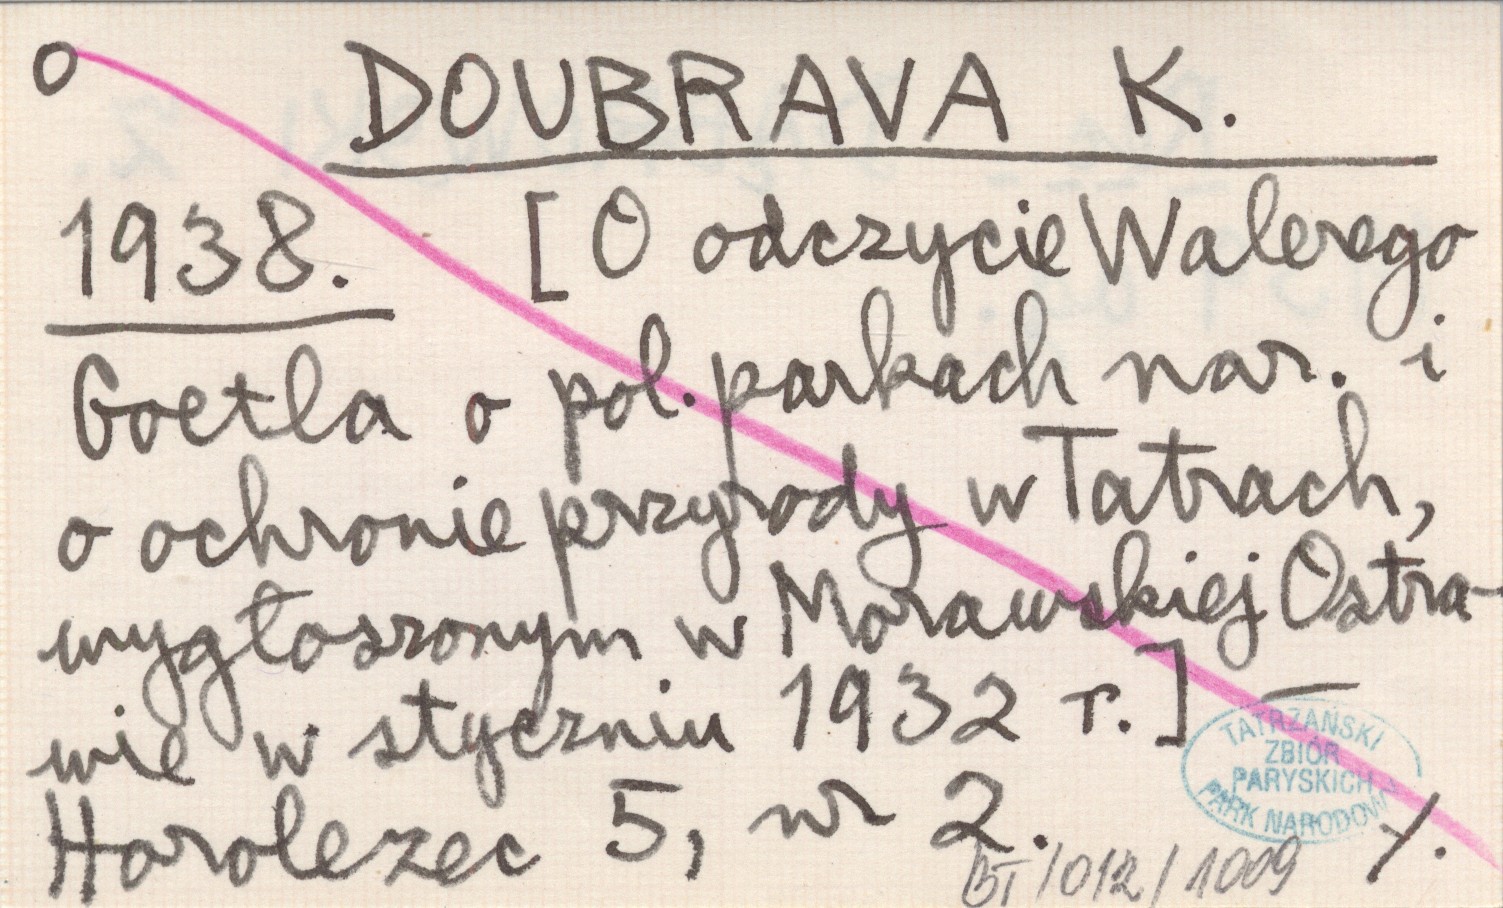 o DOUBRAVA K.
1938. [O odczycie Walerego
Goetla o pol. parkach nar. i
o ochronie przyrody w Tatrach,
wygłoszonym w Morawskiej Ostra-
wie w styczniu 1932 r.] —
Horolezec 5, nr 2. /.
TATRZAŃSKI
ZBIÓR
PARYSKICH
PARK NARODOWY
BT/012/1009